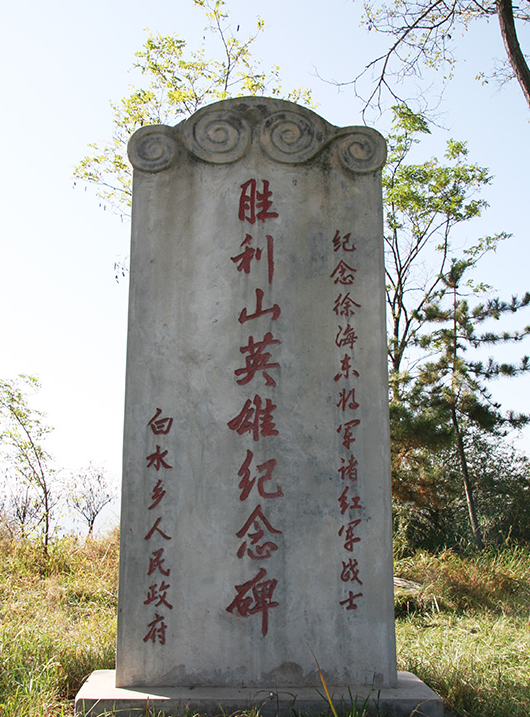 纪念徐海东将军诸红军战士
胜利山英雄纪念碑
白水乡人民政府